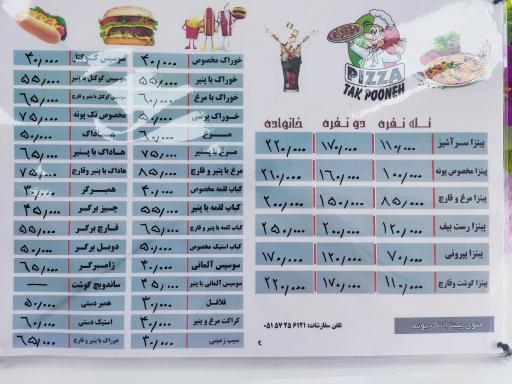 PIZZA
TAK POONEH
تک نفره دو نفره خانواده
پیتزا سرآشپز ۱۱۰/۰۰۰ ۱۷۰/۰۰۰ ۲۲۰/۰۰۰
پیتزا مخصوص پونه ۱۰۰/۰۰۰ ۱۶۰/۰۰۰ ۲۱۰/۰۰۰
پیتزا مرغ و قارچ ۸۵/۰۰۰ ۱۵۰/۰۰۰ ۲۰۰/۰۰۰
پیتزا رست بیف ۱۲۰/۰۰۰ ۲۰۰/۰۰۰ ۲۵۰/۰۰۰
پیتزا پپرونی ۷۰/۰۰۰ ۱۲۰/۰۰۰ ۱۷۰/۰۰۰
پیتزا گوشت وقارچ ۱۱۰/۰۰۰ ۱۷۰/۰۰۰ ۲۲۰/۰۰۰
منوی پیتزا تک پونه
تلفن سفارشات: ۰۵۱۵۷۲۵۶۱۲۱
۲
خوراک مخصوص ۴۰/۰۰۰
خوراک با پنیر ۵۵/۰۰۰
خوراک با مرغ ۶۰/۰۰۰
خوراک ۵۰/۰۰۰
مرغ ۶۰/۰۰۰
مرغ با پنیر ۷۵/۰۰۰
مرغ با پنیر و قارچ ۸۵/۰۰۰
کباب لقمه مخصوص ۴۰/۰۰۰
کباب لقمه با پنیر ۵۵/۰۰۰
کباب لقمه با پنیر و قارچ ۶۵/۰۰۰
کباب استیک مخصوص ۵۰/۰۰۰
سوسیس آلمانی ۴۰/۰۰۰
سوسیس آلمانی با پنیر ۴۵/۰۰۰
فلافل ۳۰/۰۰۰
کراکت مرغ و پنیر ۴۰/۰۰۰
سیب زمینی ۳۰/۰۰۰
سوسیس کوکتل ۴۰/۰۰۰
سوسیس کوکتل با پنیر ۵۵/۰۰۰
سوسیس کوکتل با پنیر و قارچ ۶۵/۰۰۰
مخصوص تک پونه ۷۵/۰۰۰
هاتداگ ۵۰/۰۰۰
هاتداگ با پنیر ۶۵/۰۰۰
هاتداگ با پنیر وقارچ ۷۵/۰۰۰
همبرگر ۳۰/۰۰۰
چیز برگر ۴۵/۰۰۰
قارچ برگر ۵۵/۰۰۰
دوبل برگر ۵۰/۰۰۰
ژامبرگر ۶۵/۰۰۰
ساندویچ گوشت —
همبر دستی ۵۰/۰۰۰
استیک دستی ۶۰/۰۰۰
خوراک با پنیر و قارچ ۶۵/۰۰۰